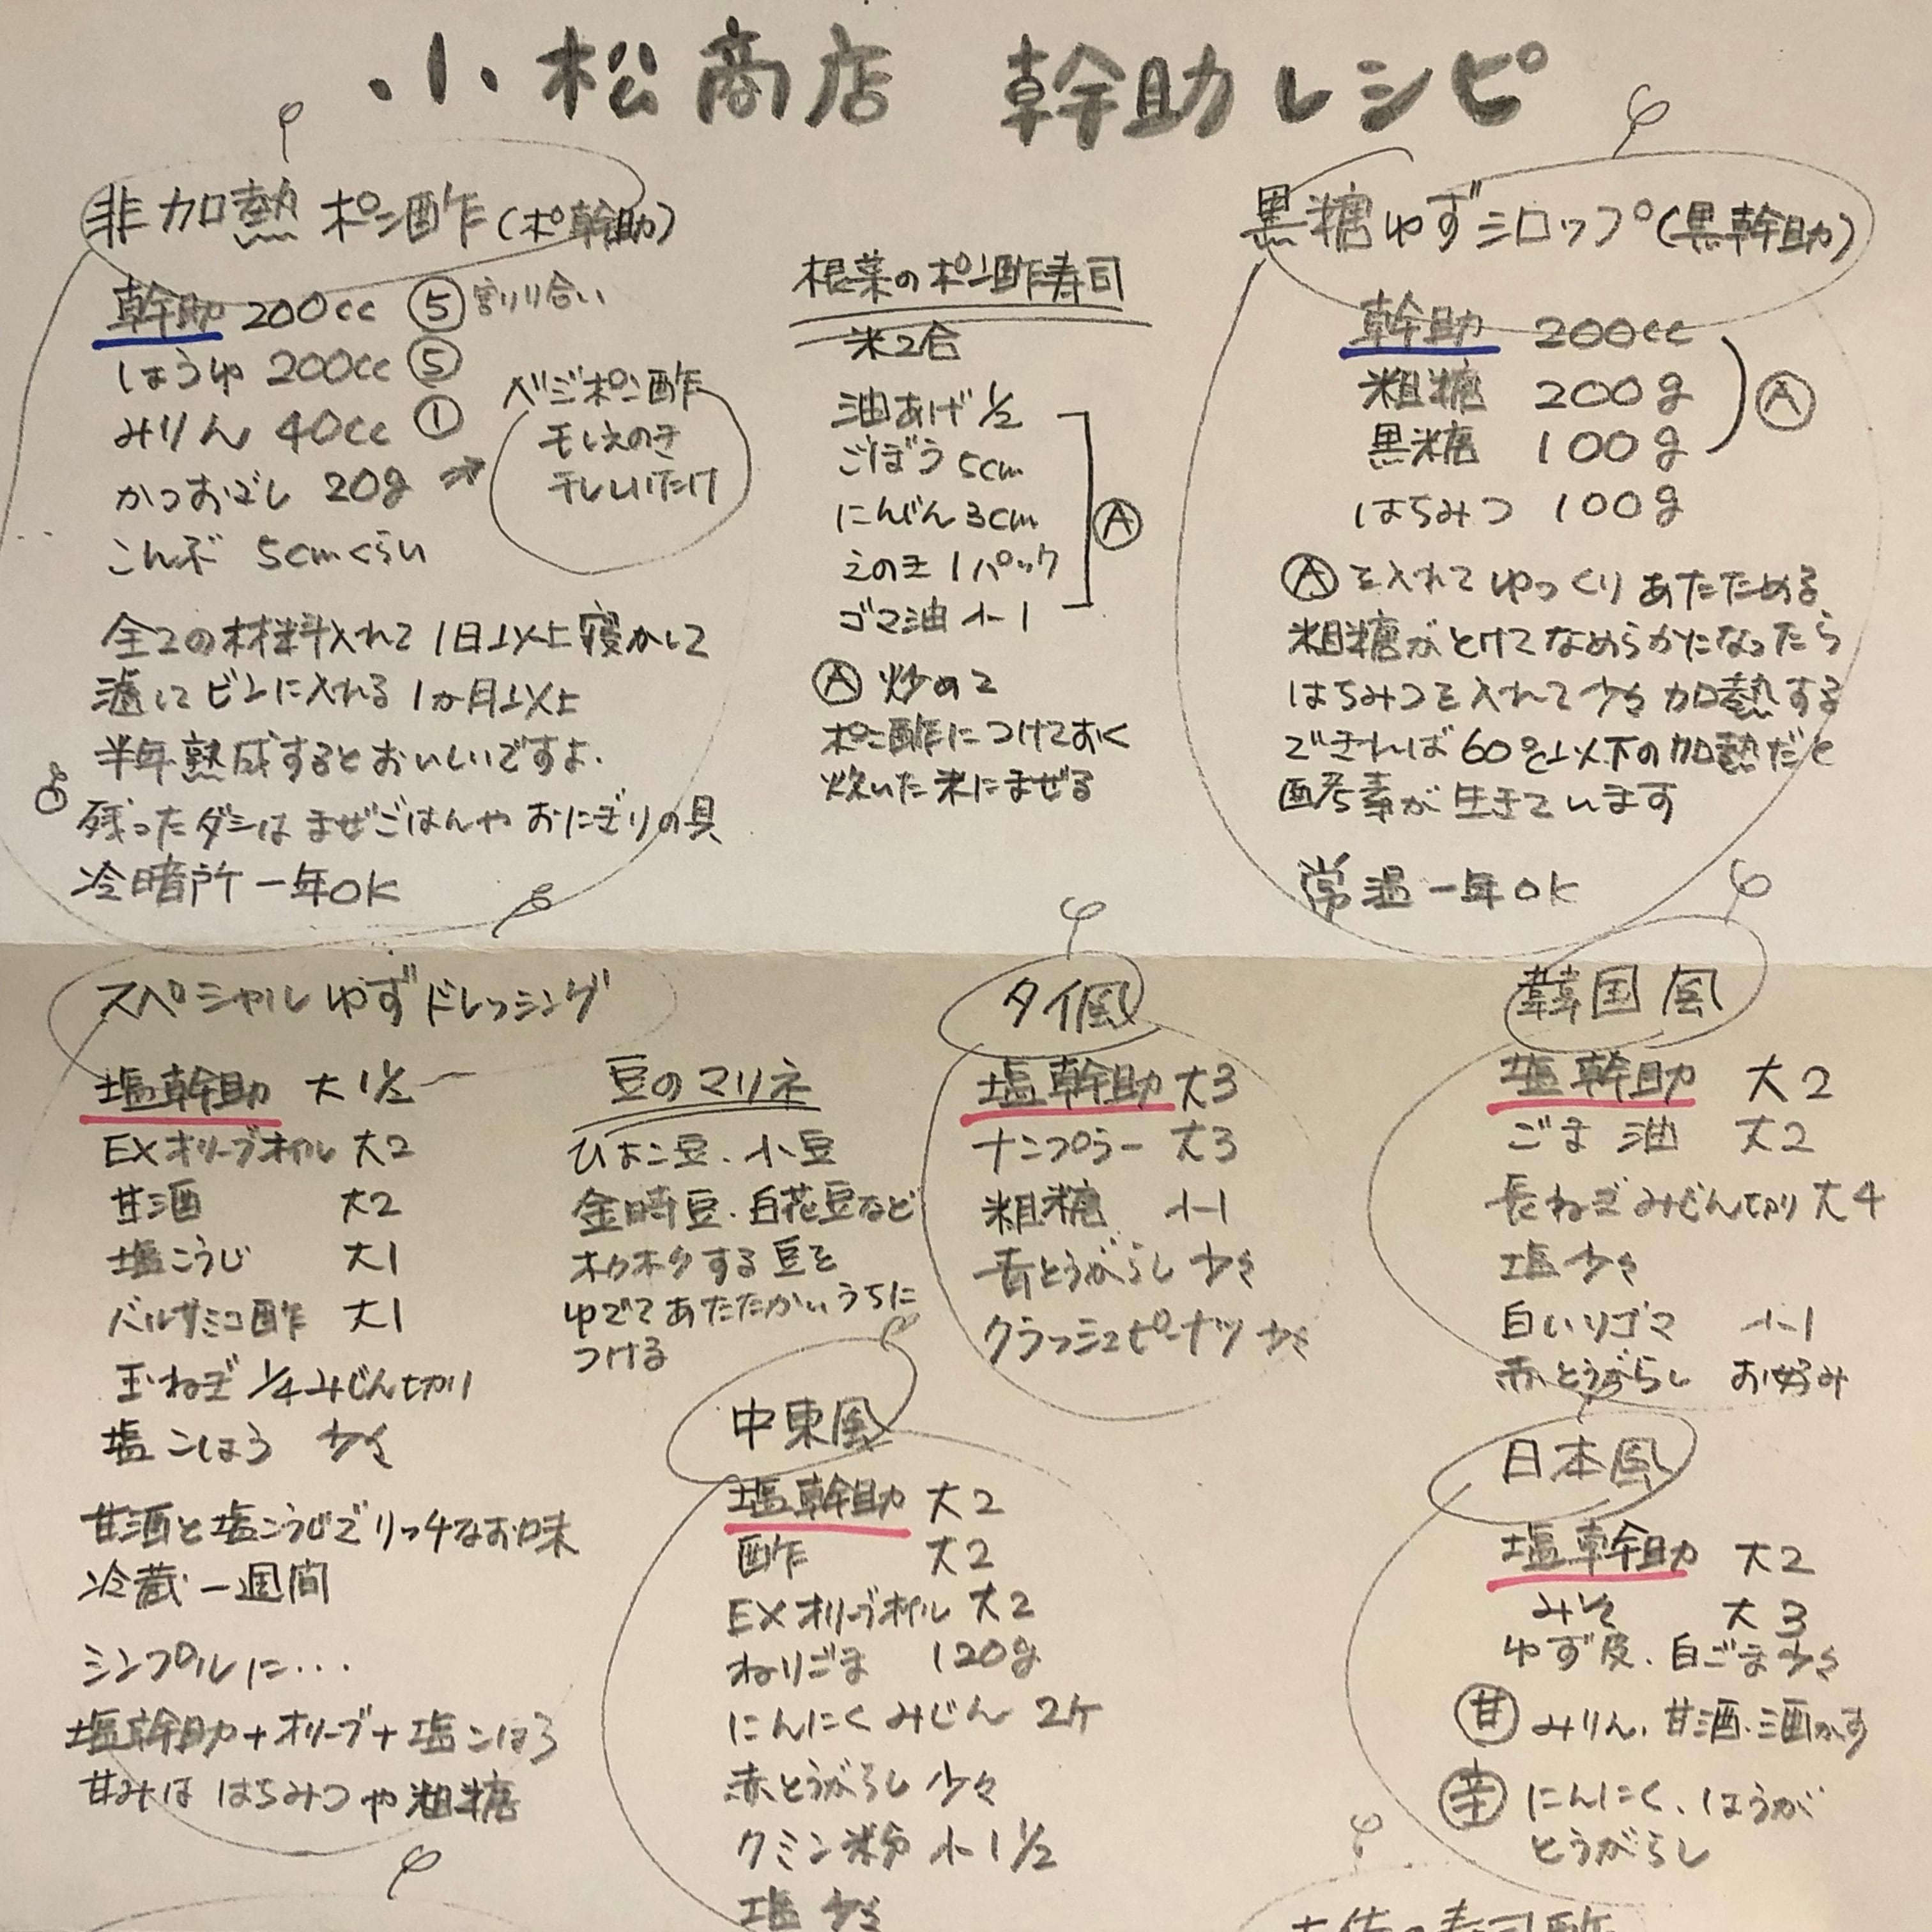 小松商店 幹助レシピ
非加熱ポン酢(ポ幹助)
幹助 200cc ⑤ 割り合い
しょうゆ 200cc ⑤
みりん 40cc ①
かつおぶし 20g →
こんぶ 5cmくらい
ベジポン酢
干しえのき
干ししいたけ
全ての材料入れて1日以上寝かして
濾してビンに入れる 1か月以上
半年熟成するとおいしいですよ.
残ったダシは まぜごはんや おにぎりの具
冷暗所 一年OK
根菜のポン酢寿司
米2合
油あげ 1/2
ごぼう 5cm
にんじん 3cm
えのき 1パック
ゴマ油 小1
Ⓐ
Ⓐ 炒めて
ポン酢につけておく
炊いた米にまぜる
黒糖ゆずシロップ(黒幹助)
幹助 200cc
粗糖 200g
黒糖 100g
Ⓐ
はちみつ 100g
Ⓐを入れて ゆっくり あたためる
粗糖がとけてなめらかになったら
はちみつを入れて少々加熱する
できれば60℃以下の加熱だと
酵素が生きています
常温一年OK
スペシャルゆずドレッシング
塩幹助 大1½
EXオリーブオイル 大2
甘酒 大2
塩こうじ 大1
バルサミコ酢 大1
玉ねぎ 1/4みじん切り
塩こしょう 少々
甘酒と塩こうじでリッチなお味
冷蔵一週間
シンプルに・・・
塩幹助+オリーブ+塩こしょう
甘みは はちみつや粗糖
豆のマリネ
ひよこ豆、小豆
金時豆、白花豆など
ホクホクする豆を
ゆでてあたたかいうちに
つける
タイ風
塩幹助 大3
ナンプラー 大3
粗糖 小1
青とうがらし 少々
クラッシュピーナツ 少々
韓国風
塩幹助 大2
ごま油 大2
長ねぎみじん切り 大4
塩少々
白いりゴマ 小1
赤とうがらし お好み
中東風
塩幹助 大2
酢 大2
EXオリーブオイル 大2
ねりごま 120g
にんにくみじん 2ケ
赤とうがらし 少々
クミン粉 小1½
塩 少々
日本風
塩幹助 大2
みそ 大3
ゆず皮、白ごま少々
㊙甘 みりん、甘酒、酒かす
辛 にんにく、しょうが
とうがらし
土佐の寿司酢